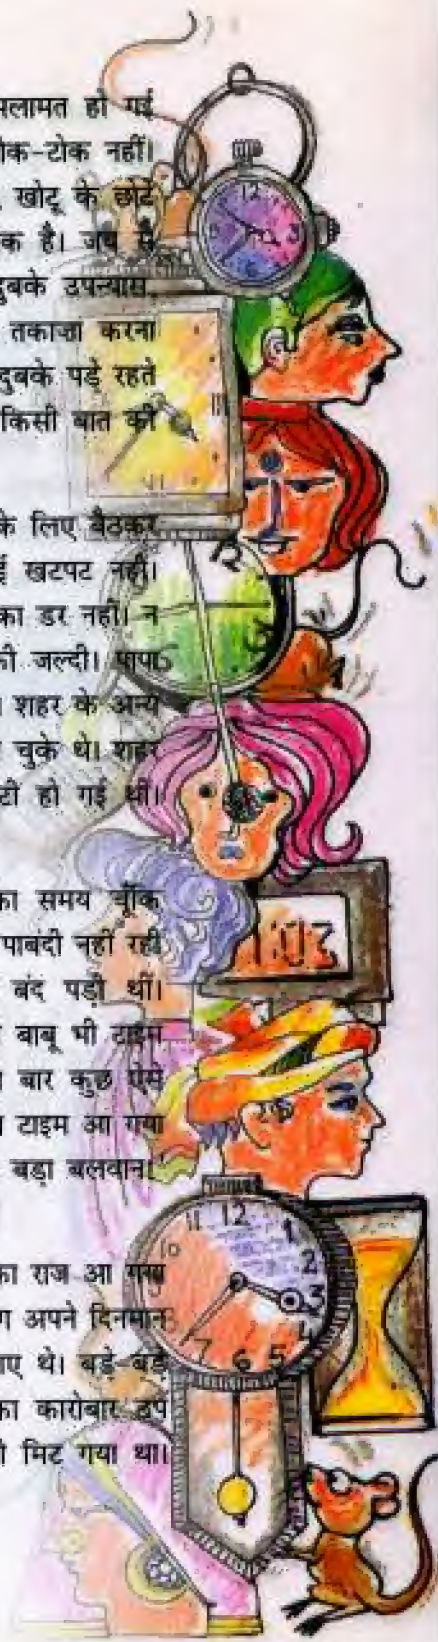 मलामत हो गई
रोक-टोक नहीं।
खोटू के छोटे
क है। जब से
दुबके उपन्यास,
तकाजा करना
दुबके पड़े रहते
किसी बात की
के लिए बैठकर
ई खटपट नहीं।
का डर नहीं। न
की जल्दी। पापा
। शहर के अन्य
चुके थे। शहर
टी हो गई थी।
का समय चूँकि
पाबंदी नहीं रही
बंद पड़ी थीं।
बाबू भी टाइम
बार कुछ ऐसे
टाइम आ गया
बड़ा बलवान।'
का राज आ गया
ग अपने दिनमान
गए थे। बड़े-बड़े
का कारोबार ठप
ो मिट गया था।
12
3
12
1:02
11 12 1
10 2
3
4
7 6 5